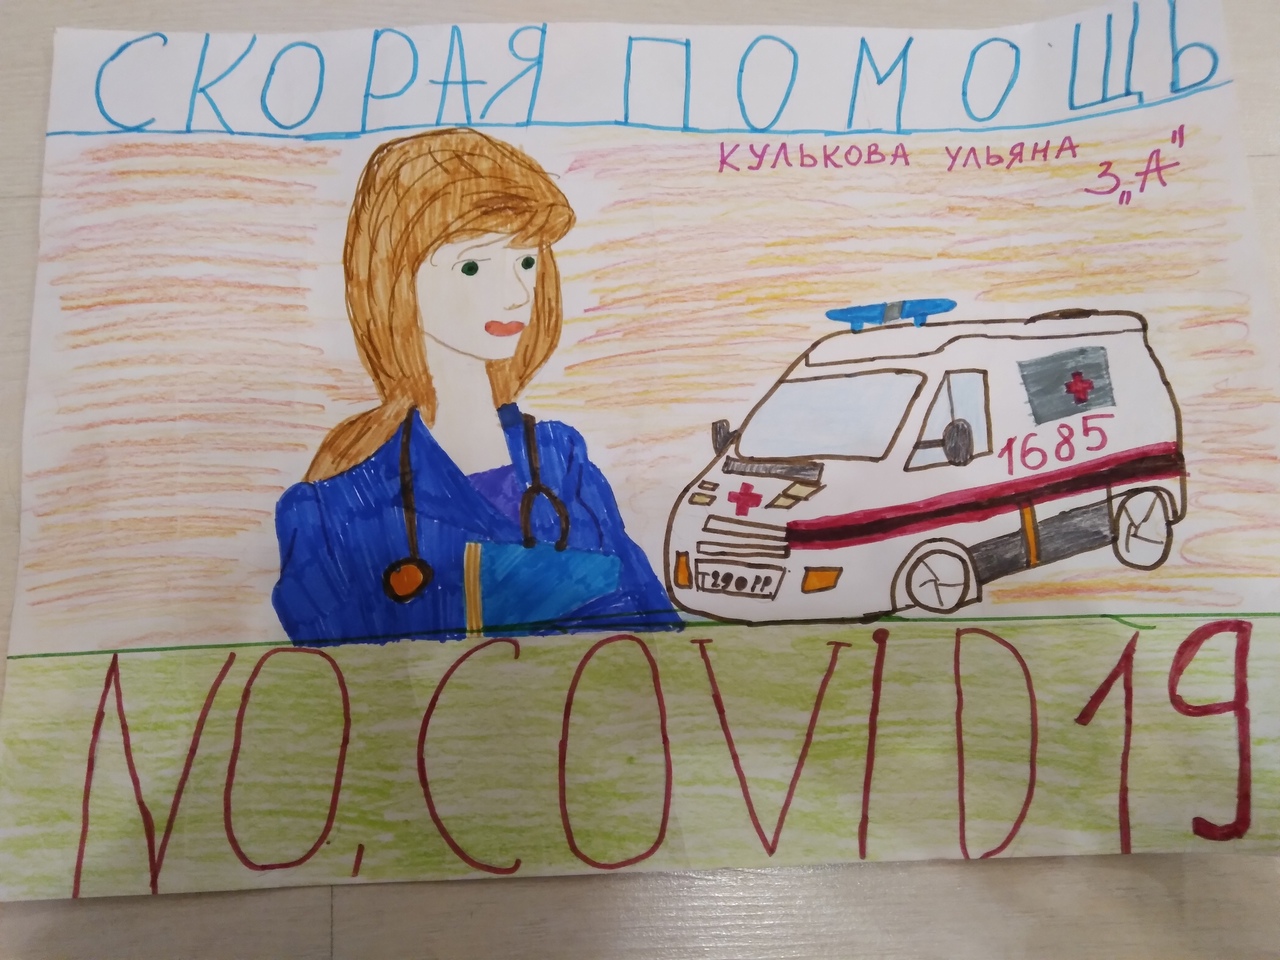 СКОРАЯ ПОМОЩЬ
КУЛЬКОВА УЛЬЯНА
3„А"
1685
Т290РР
NO, COVID 19